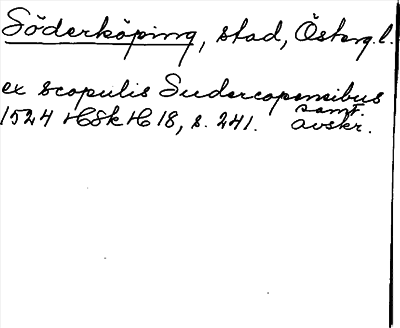 Söderköping, stad, Österg.l.
ex scopulis Sudercopensibus
1524 HSkH 18, s. 241. samt. avskr.